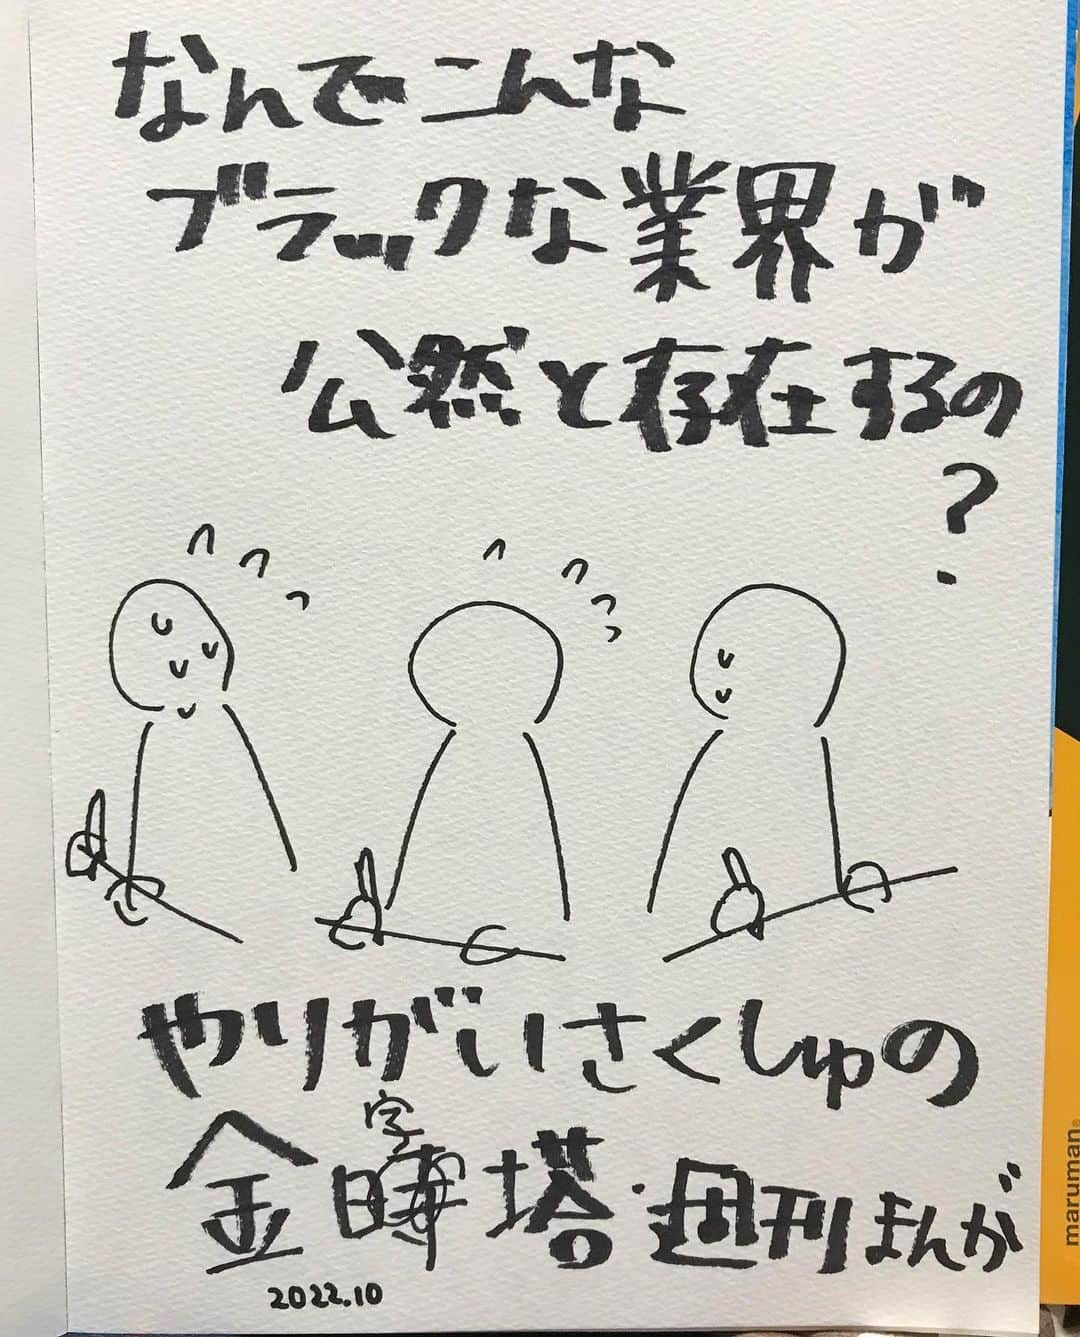 なんでこんな
ブラックな業界が
公然と存在するの
?
やりがいさくしゅの
金字塔・週刊まんが
2022.10
maruman®